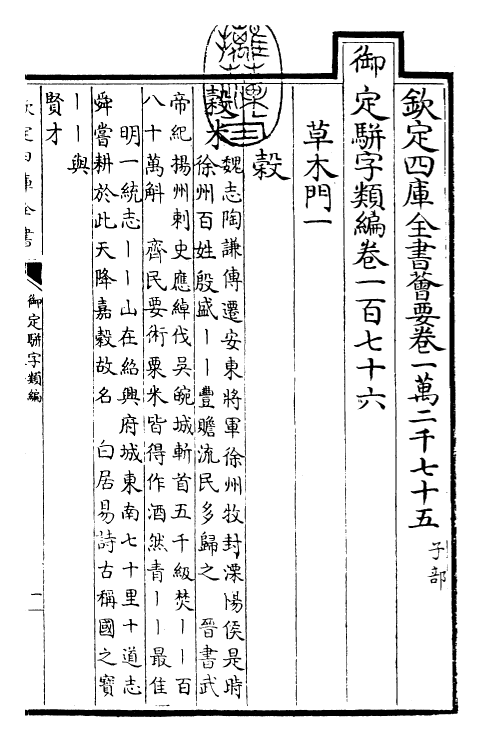 欽定四庫全書薈要卷一萬二千七十五 子部
御定駢字類編卷一百七十六
草木門一
穀
穀米
魏志陶謙傳遷安東將軍徐州牧封溧陽侯是時
徐州百姓殷盛丨丨豐贍流民多歸之 晉書武
帝紀揚州刺史應綽伐吳皖城斬首五千級焚丨丨百
八十萬斛 齊民要術粟米皆得作酒然青丨丨最佳
明一統志丨丨山在紹興府城東南七十里十道志
舜嘗耕於此天降嘉穀故名 白居易詩古稱國之寶
丨丨與
賢才
欽定四庫全書
御定駢字類編